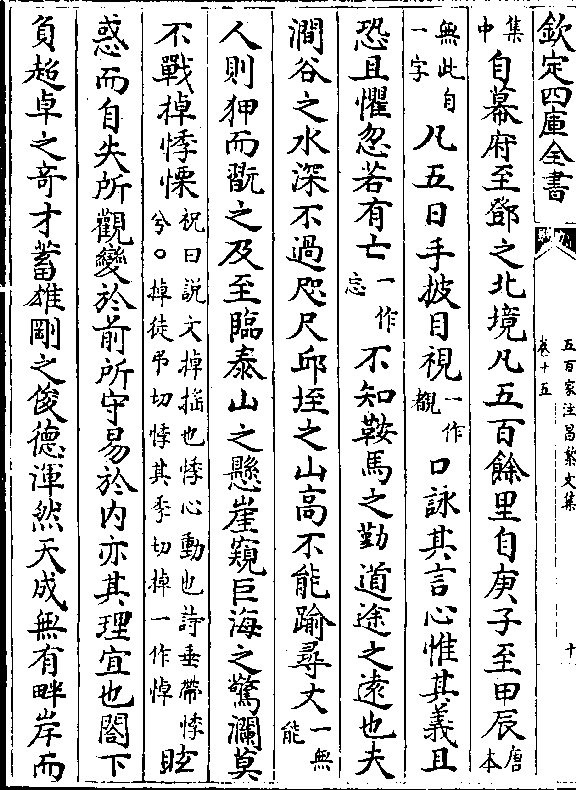 欽定四庫全書
五百家注昌黎文集
卷十五
十
集中自幕府至鄧之北境凡五百餘里自庚子至甲辰唐本
無此自一字凡五日手披目視一作觀口詠其言心惟其義且
恐且懼忽若有亡一作忘不知鞍馬之勤道途之遠也夫
澗谷之水深不過咫尺邱垤之山高不能踰尋丈一無能
人則狎而翫之及至臨泰山之懸崖窺巨海之驚瀾莫
不戰掉悸慄祝曰說文掉揺也悸心動也詩垂帶悸兮○掉徒弔切悸其季切掉一作悼眩
惑而自失所觀變於前所守易於内亦其理宜也閤下
負超卓之奇才蓄雄剛之俊德渾然天成無有畔岸而